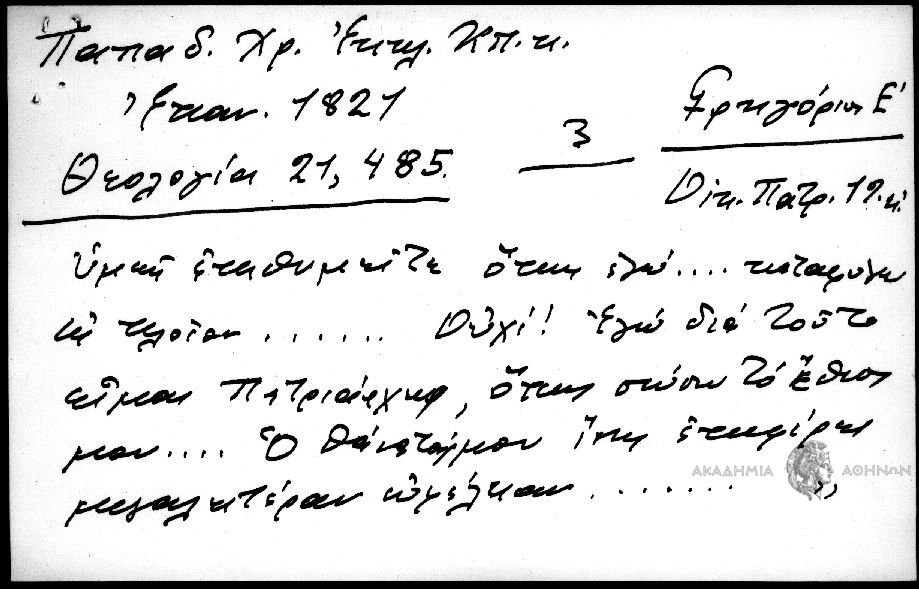 Παπαδ. Χρ. Ἐκκλ. Κπ.κ.
Ἐπαν. 1821
Θεολογία 21, 485.
3
Γρηγόριος Ε'
Οἰκ. Πατρ. 19.κ.
Ὑμεῖς ἐπιθυμεῖτε ὅπως ἐγώ.... καταφύγω
εἰς πλοῖον ...... Οὐχί! Ἐγώ διά τοῦτο
εἶμαι Πατριάρχης, ὅπως σώσω τό Ἔθνος
μου.... Ὁ θάνατός μου ἴσως ἐπιφέρῃ
μεγαλειτέραν ὠφέλειαν ........ ,,
ΑΚΑΔΗΜΙΑ ΑΘΗΝΩΝ